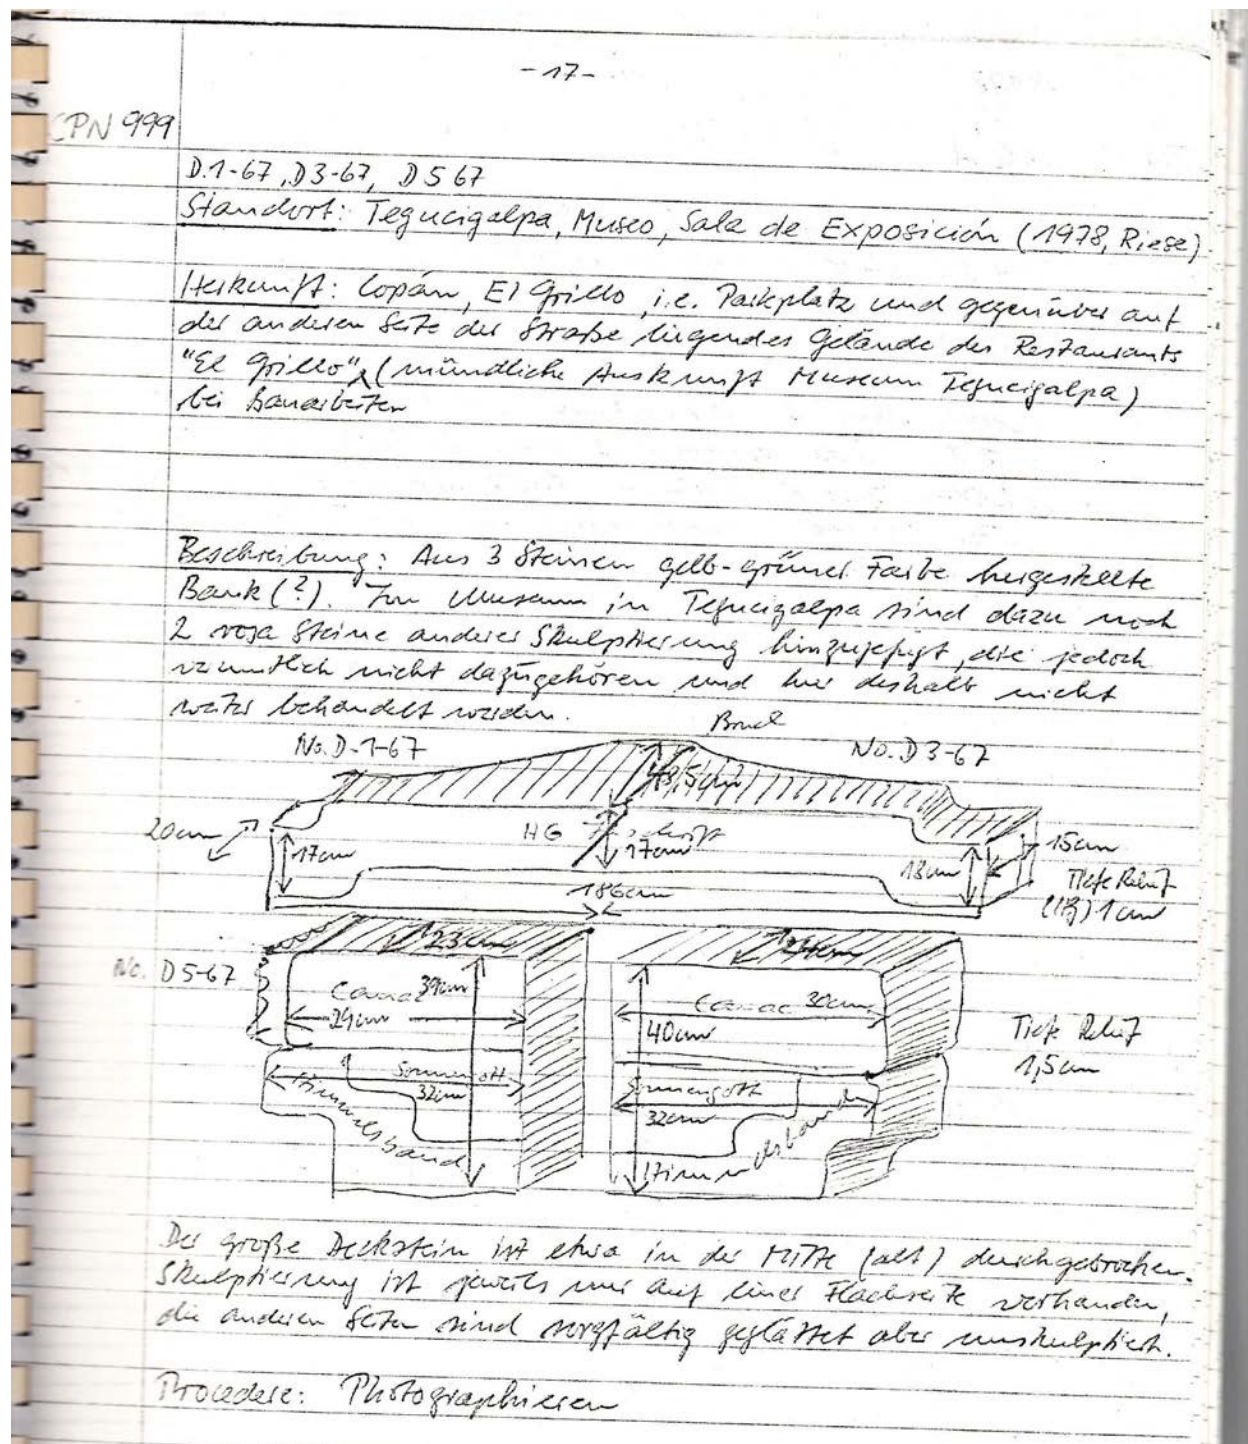 -17-
CPN 999
D.1-67, D3-67, D 5 67
Standort: Tegucigalpa, Museo, Sala de Exposición (1978, Riese)
Herkunft: Copán, El Grillo, i.e. Parkplatz und gegenüber auf
der anderen Seite der Straße liegendes Gelände des Restaurants
"El Grillo", (mündliche Auskunft Museum Tegucigalpa)
bei Bauarbeiten
Beschreibung: Aus 3 Steinen gelb-grüner Farbe hergestellte
Bank (?). Im Museum in Tegucigalpa sind dazu noch
2 rosa Steine anderer Skulptierung hinzugefügt, die jedoch
vermutlich nicht dazugehören und hier deshalb nicht
weiter behandelt werden.
Bruch
No. D-1-67
No. D3-67
20cm
HG
17cm
17cm
18cm
15cm
186cm
Tiefe Relief
1cm
23cm
No. D5-67
Cauac 39cm
29cm
Cauac 30cm
40cm
Tiefe Relief
1,5cm
Sonnengott
32cm
Himmelsband
Sonnengott
32cm
Himmelsband
Der große Deckstein ist etwa in der Mitte (alt) durchgebrochen.
Skulptierung ist jeweils nur auf einer Flachseite vorhanden,
die anderen Seiten sind sorgfältig geglättet aber unskulptiert.
Procedere: Photographieren